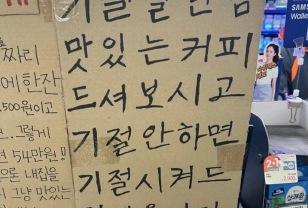 기절할만큼
맛있는커피
드셔보시고
기절안하면
기절시켜드
짜리
에한잔
,500원이고
그렇게
54만원!!
내집을
그냥 맛있는
SAMS
Wallet
2+1
2,900